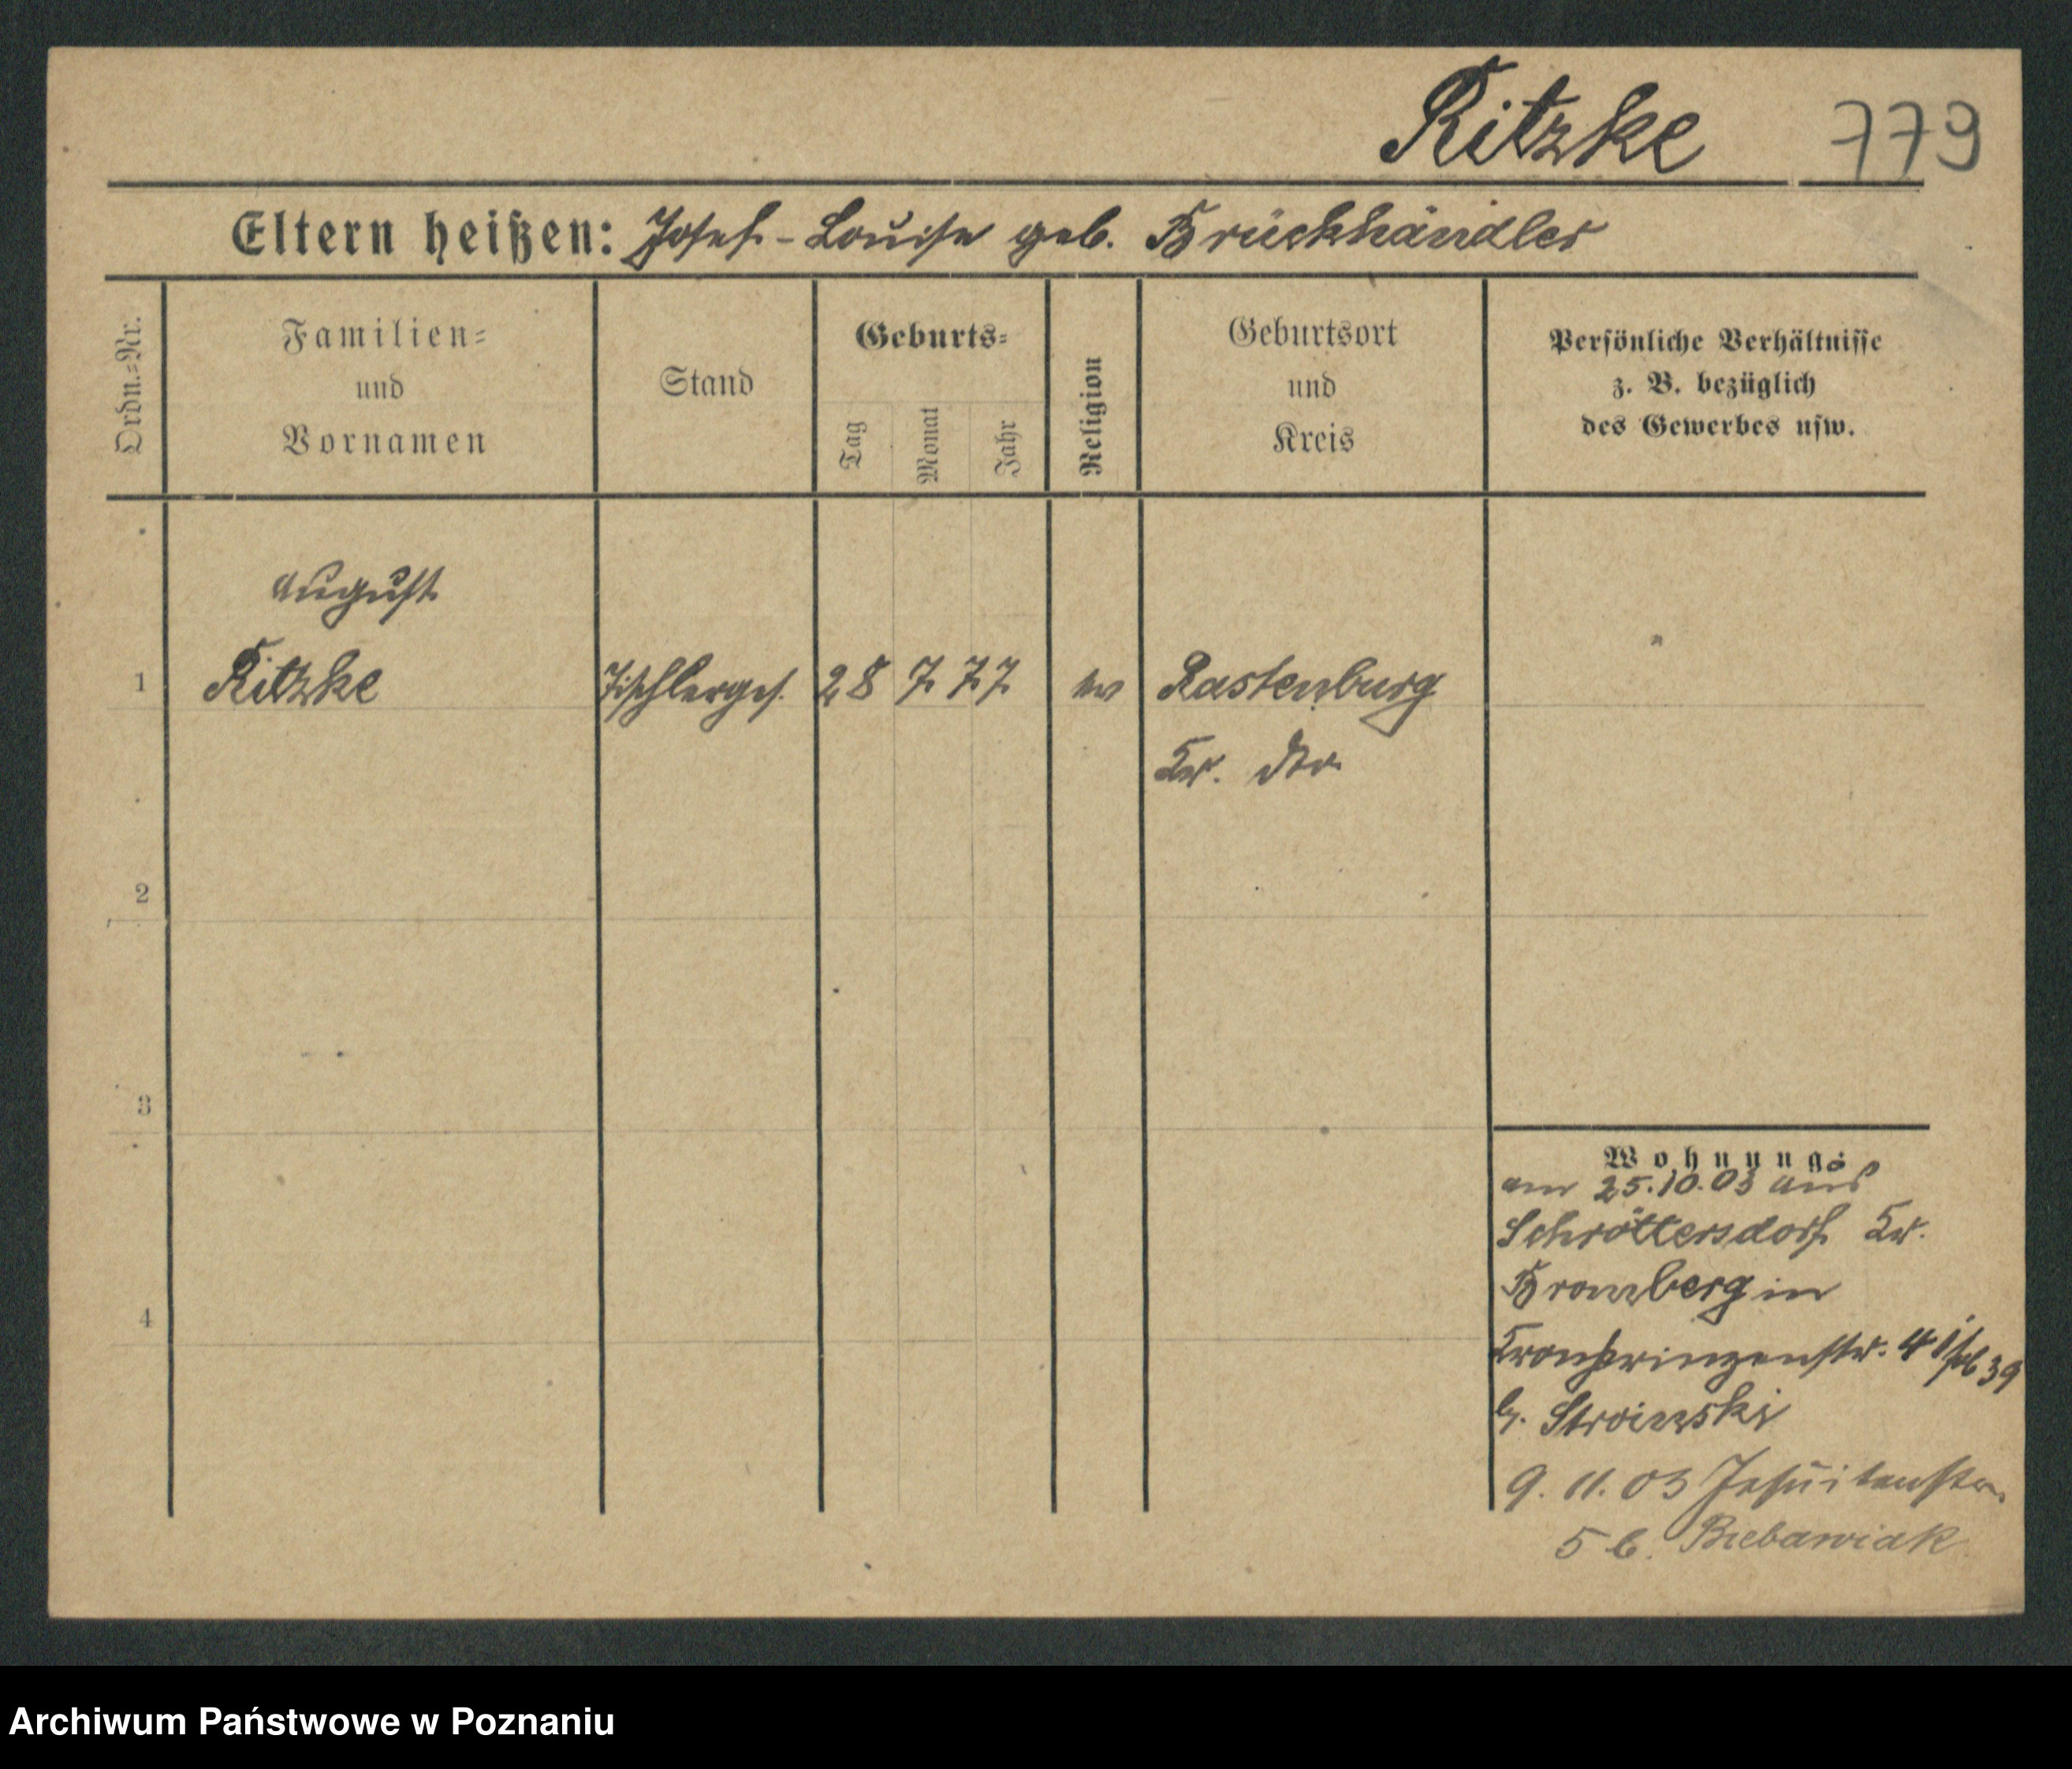 Ritzke 779
Eltern heißen: Josef - Louise geb. Brückhändler
Ordn.-Nr.
Familien-
und
Vornamen
Stand
Geburts-
Tag
Monat
Jahr
Religion
Geburtsort
und
Kreis
Persönliche Verhältnisse
z. B. bezüglich
des Gewerbes usw.
August
1 Ritzke Tischlerges. 28 7. 77 ev Rastenburg
Kr. dto
2
3
4
Wohnung:
am 25.10.03 aus
Schröttersdorf Kr.
Bromberg in
Kronprinzenstr. 41
b. Stroinski
9. 11. 03 Jesuitenstr.
5 b.
Archiwum Państwowe w Poznaniu